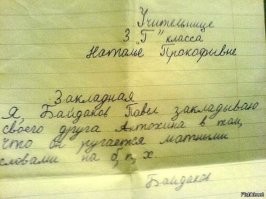 Учительнице
3 "Г" класса
Наталье Прокофьивне
Закладная
Я, Байдаков Павел закладываю
своего друга Антохина в том,
что он ругается матными
словами на б, п, х
Байдаков